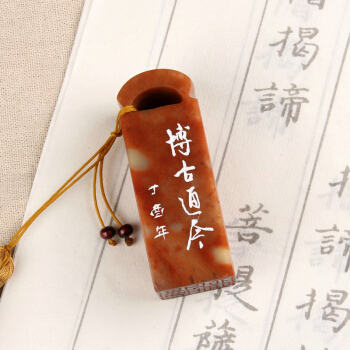 博古通今
丁酉年
揭諦
菩提薩
揭諦